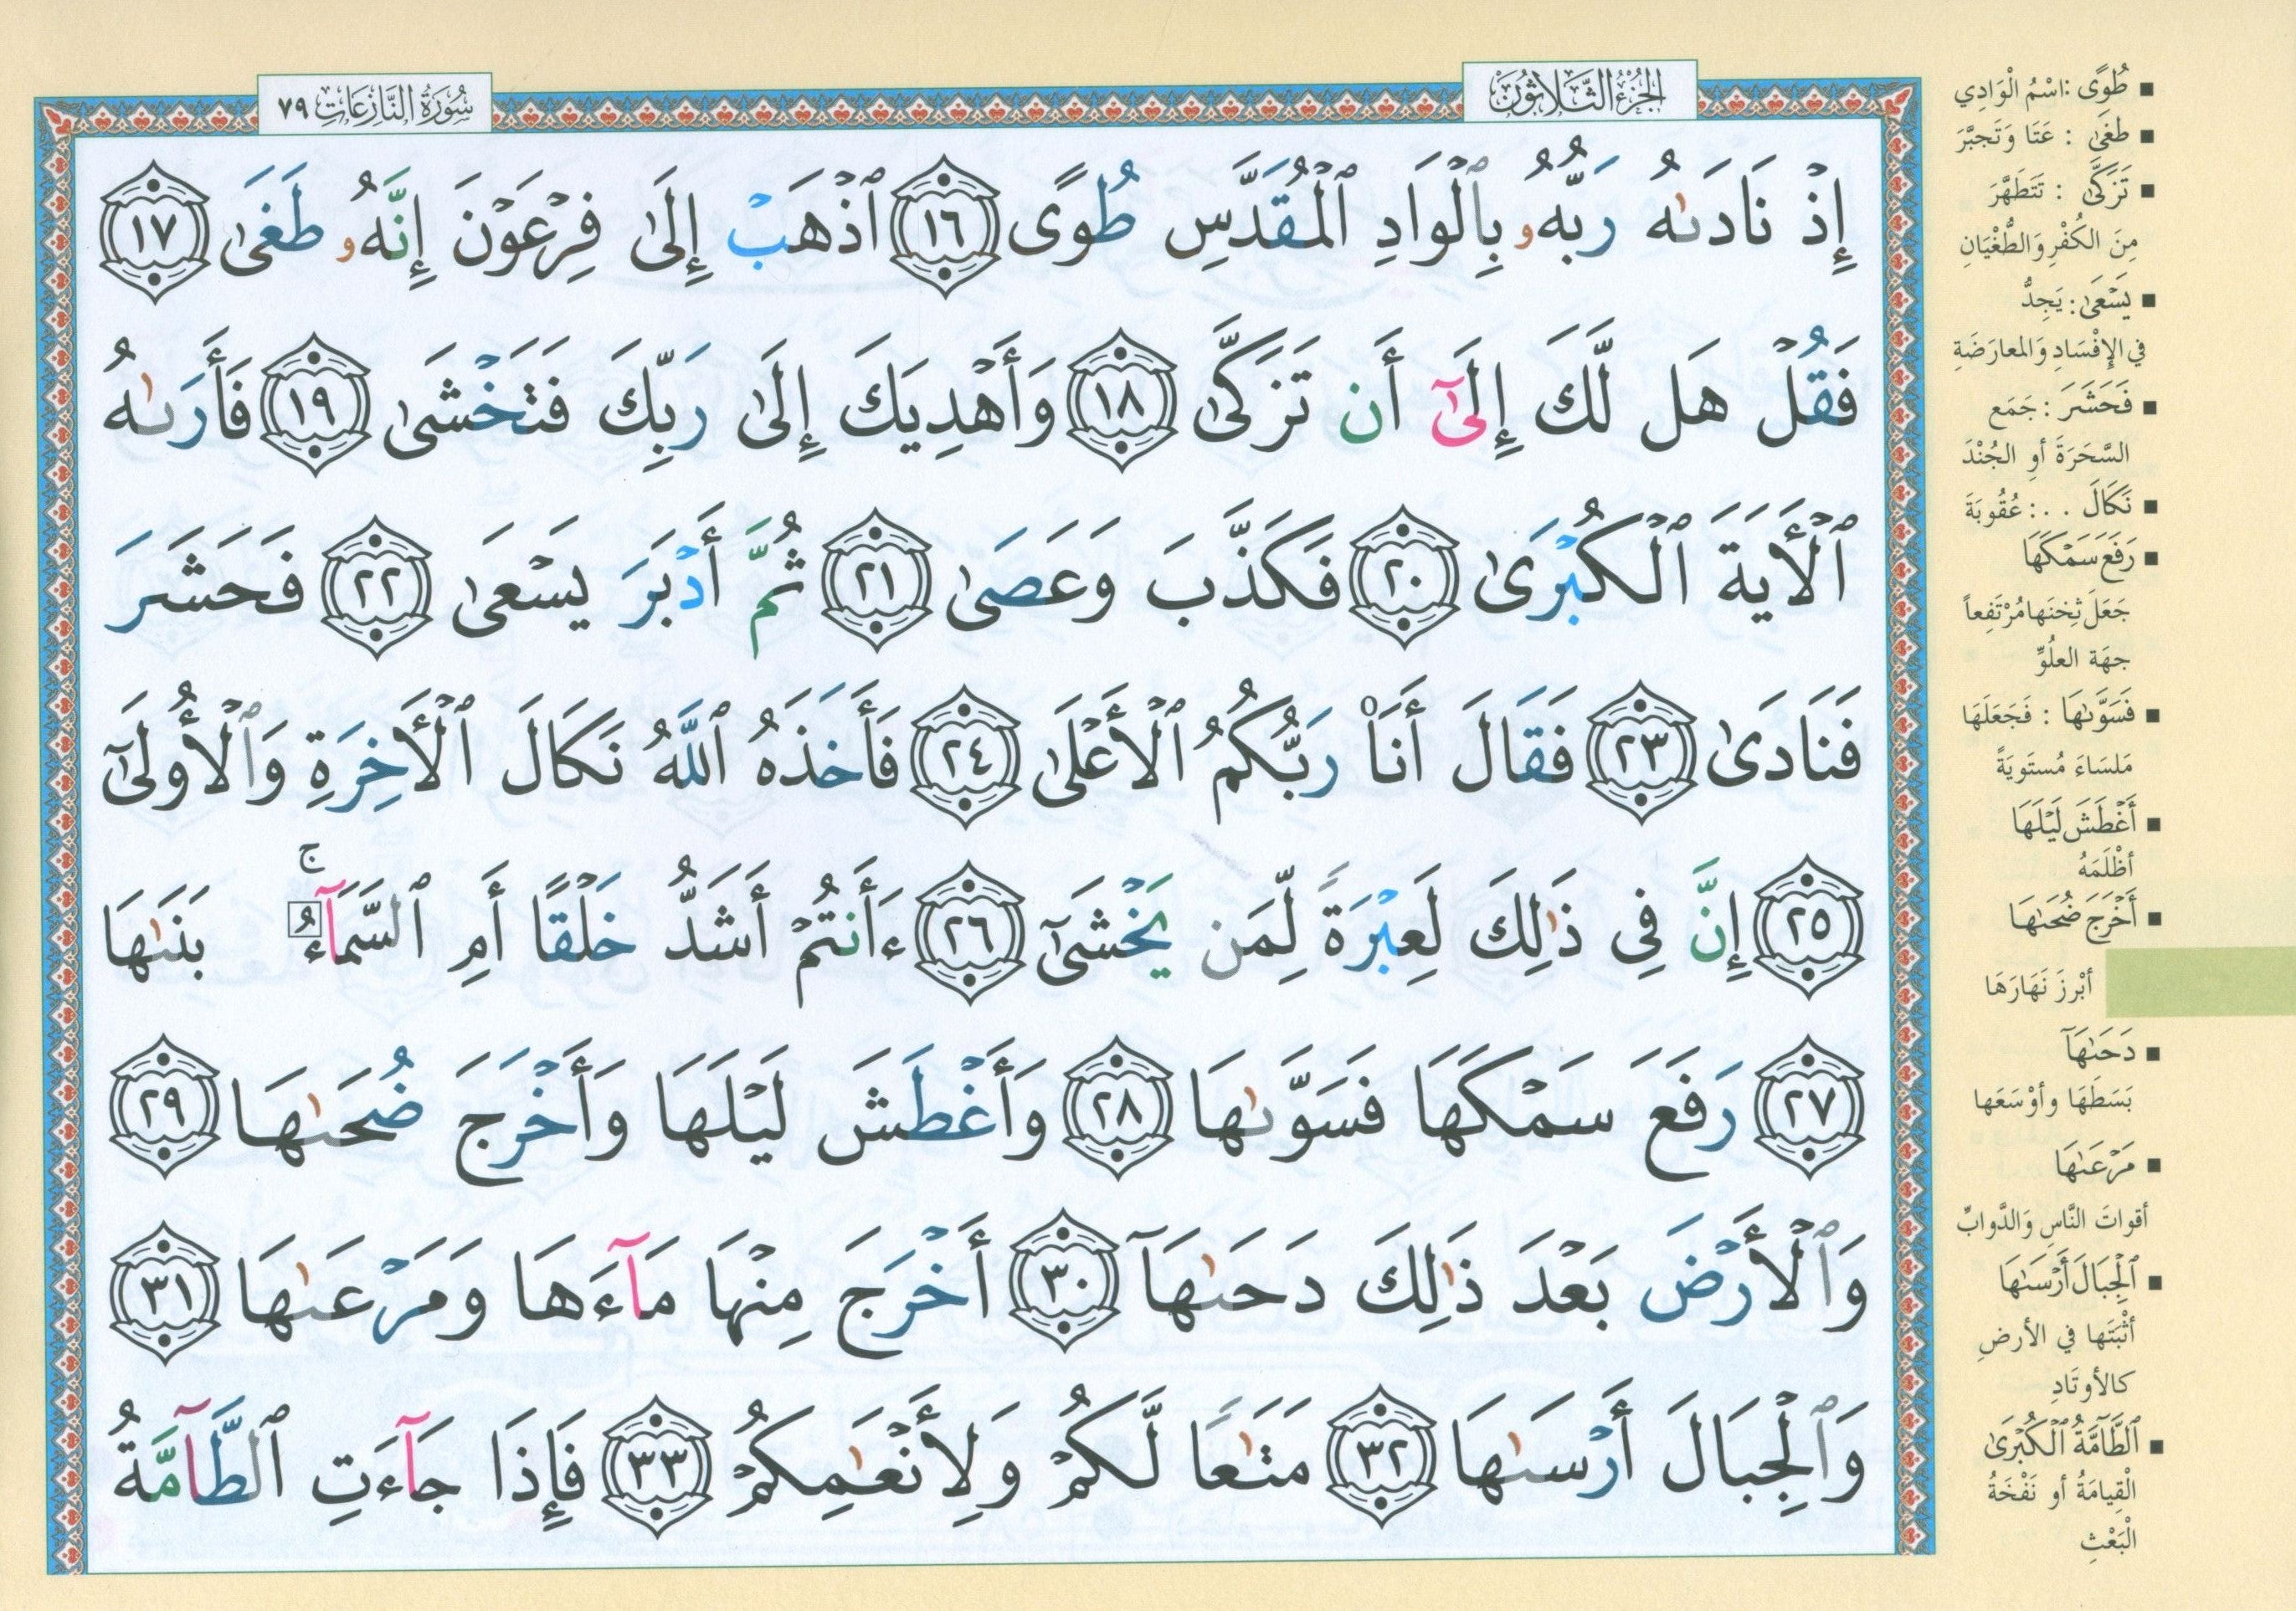 الجُزءُ الثَّلَاثُونَ
سُورَةُ النَّازِعَاتِ ٧٩
إِذْ نَادَىٰهُ رَبُّهُۥ بِٱلْوَادِ ٱلْمُقَدَّسِ طُوًى ١٦ ٱذْهَبْ إِلَىٰ فِرْعَوْنَ إِنَّهُۥ طَغَىٰ ١٧
فَقُلْ هَل لَّكَ إِلَىٰٓ أَن تَزَكَّىٰ ١٨ وَأَهْدِيَكَ إِلَىٰ رَبِّكَ فَتَخْشَىٰ ١٩ فَأَرَىٰهُ
ٱلْأَيَةَ ٱلْكُبْرَىٰ ٢٠ فَكَذَّبَ وَعَصَىٰ ٢١ ثُمَّ أَدْبَرَ يَسْعَىٰ ٢٢ فَحَشَرَ
فَنَادَىٰ ٢٣ فَقَالَ أَنَا۠ رَبُّكُمُ ٱلْأَعْلَىٰ ٢٤ فَأَخَذَهُ ٱللَّهُ نَكَالَ ٱلْأَخِرَةِ وَٱلْأُولَىٰٓ
٢٥ إِنَّ فِي ذَٰلِكَ لَعِبْرَةً لِّمَن يَخْشَىٰٓ ٢٦ ءَأَنتُمْ أَشَدُّ خَلْقًا أَمِ ٱلسَّمَآءُ ۚ بَنَىٰهَا
٢٧ رَفَعَ سَمْكَهَا فَسَوَّىٰهَا ٢٨ وَأَغْطَشَ لَيْلَهَا وَأَخْرَجَ ضُحَىٰهَا ٢٩
وَٱلْأَرْضَ بَعْدَ ذَٰلِكَ دَحَىٰهَآ ٣٠ أَخْرَجَ مِنْهَا مَآءَهَا وَمَرْعَىٰهَا ٣١
وَٱلْجِبَالَ أَرْسَىٰهَا ٣٢ مَتَٰعًا لَّكُمْ وَلِأَنْعَٰمِكُمْ ٣٣ فَإِذَا جَآءَتِ ٱلطَّآمَّةُ
■ طُوًى : اسْمُ الْوَادِي
■ طَغَىٰ : عَتَا وَتَجَبَّرَ
■ تَزَكَّىٰ : تَتَطَهَّرَ
مِنَ الكُفْرِ وَالطُّغْيَانِ
■ يَسْعَىٰ : يَجِدُّ
في الإِفْسَادِ وَالمعارَضَةِ
■ فَحَشَرَ : جَمَع
السَّحَرَةَ أو الجُنْدَ
■ نَكَالَ . . : عُقُوبَةَ
■ رَفَعَ سَمْكَهَا
جَعَلَ ثِخَنَها مُرْتَفِعاً
جهَة العلُوِّ
■ فَسَوَّىٰهَا : فَجَعَلَهَا
مَلسَاءَ مُستَوِيَةً
■ أَغْطَشَ لَيْلَهَا
أظْلَمَهُ
■ أَخْرَجَ ضُحَىٰهَا
أبْرزَ نَهَارَهَا
■ دَحَىٰهَآ
بَسَطَهَا وأوْسَعَها
■ مَرْعَىٰهَا
أقواتَ النَّاسِ وَالدَّوابِّ
■ ٱلْجِبَالَ أَرْسَىٰهَا
أثْبَتَها في الأرضِ
كالأوتَادِ
■ ٱلطَّآمَّةُ ٱلْكُبْرَىٰ
الْقِيامَةُ أو نَفْخَةُ
الْبَعْثِ